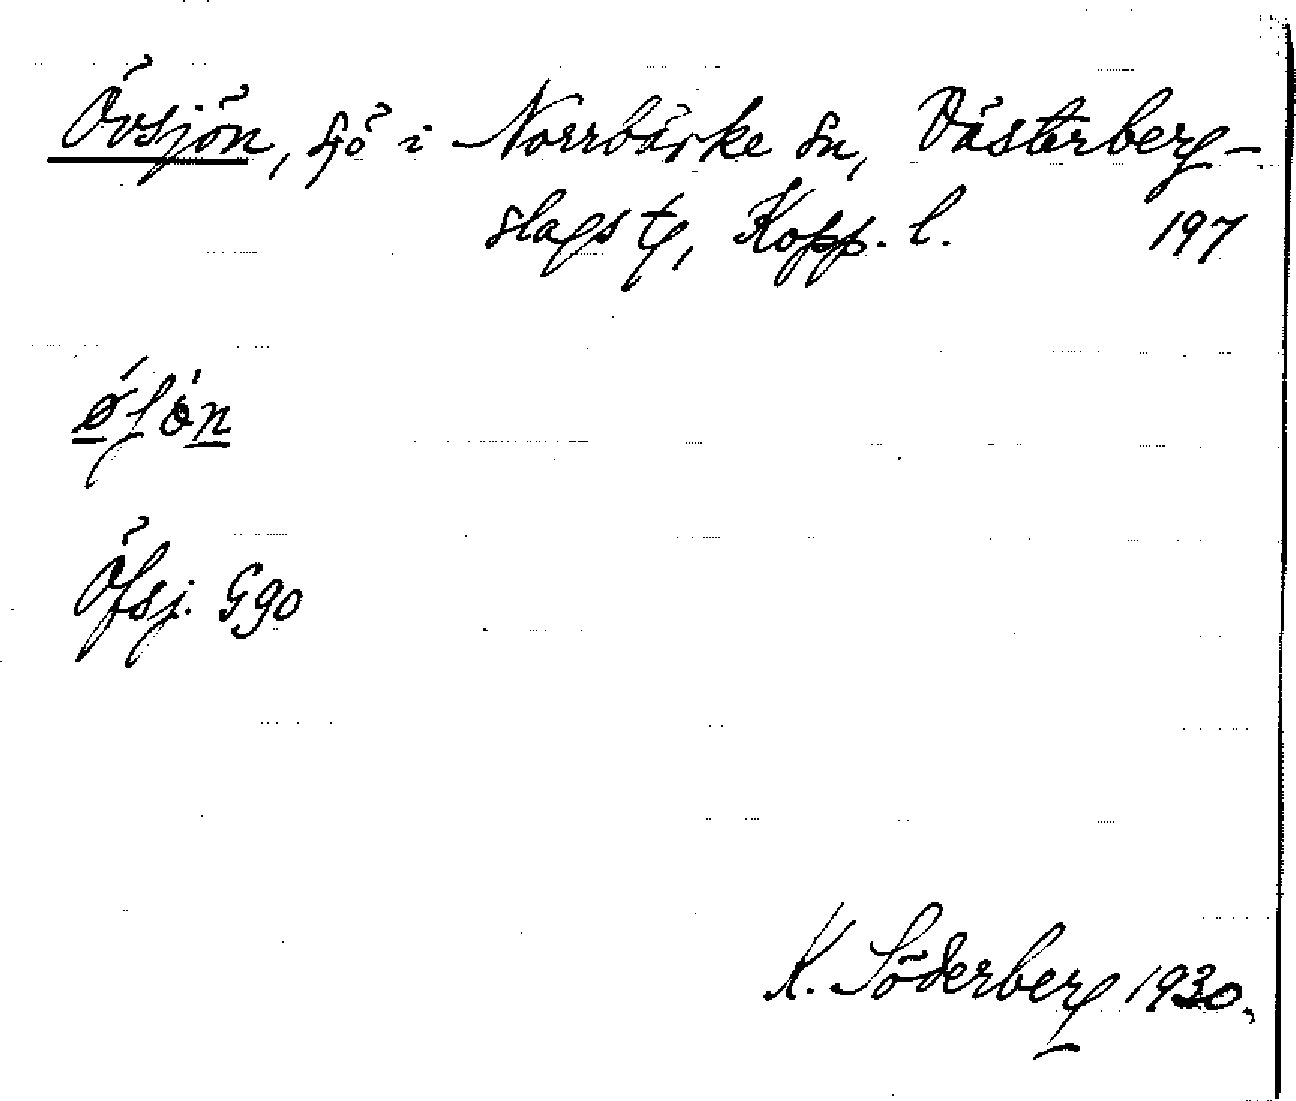 Övsjön, sjö i Norrbärke sn, Västerberg-
slags tg, Kopp. l. 197
Öfsj. G90
K. Söderberg 1930.